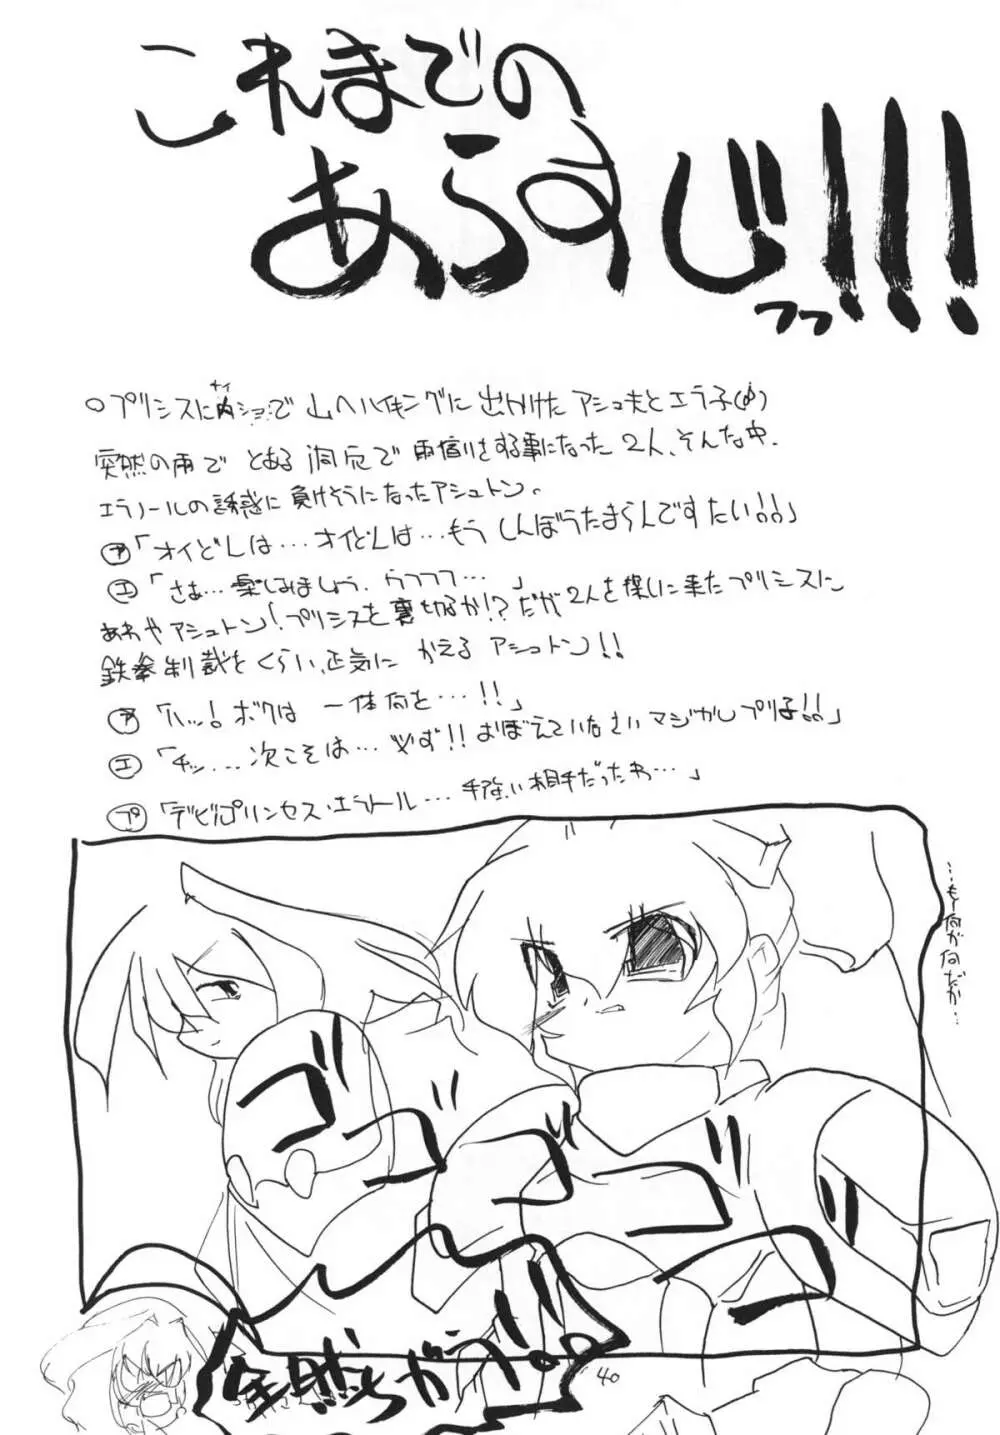 これまでの
あらすじっっ!!!
○プリシスに内ショ(ナイ)で山へハイキングに出かけたアシュ夫とエラ子(仮)
突然の雨で とある 洞穴で 雨宿りをする事になった 2人、そんな中.
エラノールの誘惑に 負けそうになったアシュトン。
ア「オイどんは…オイどんは…もう しんぼうたまらんですたい!!」
エ「さぁ…楽しみましょう. ウフフフフ…」
あわやアシュトン!プリシスを裏切るか!?だが2人を探しに来たプリシスに
鉄拳制裁をくらい、正気に かえる アシュトン!!
ア「ハッ!ボクは 一体何を…!!」
エ「チッ…次こそは…必ず!!おぼえていなさいマジカルプリ子!!」
プ「デビルプリンセス・エラノール…手強い相手だったわ…」
…もう何が何だか…
ゴゴゴゴゴ
全然ちがう!!。
40